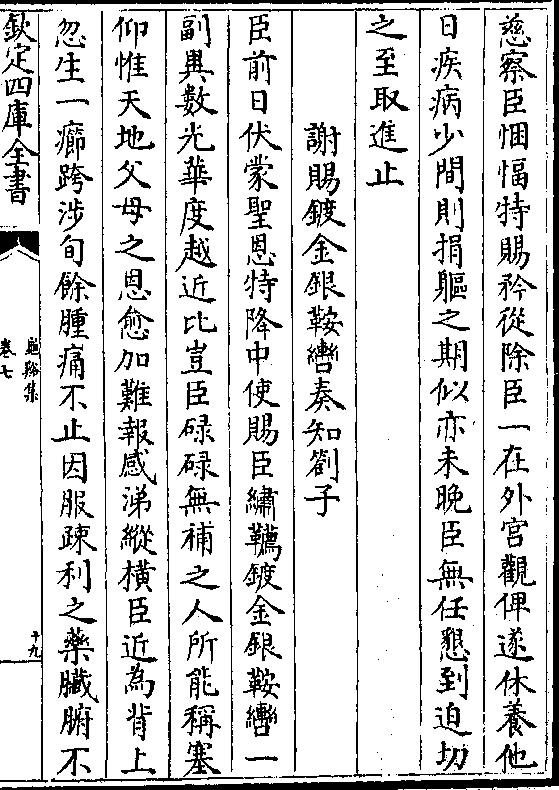 慈察臣悃愊特賜矜從除臣一在外宮觀俾遂休養他
日疾病少間則捐軀之期似亦未晚臣無任懇到迫切
之至取進止
謝賜鍍金銀鞍轡奏知劄子
臣前日伏蒙聖恩特降中使賜臣繡韉鍍金銀鞍轡一
副異數光華度越近比豈臣碌碌無補之人所能稱塞
仰惟天地父母之恩愈加難報感涕縱橫臣近為背上
忽生一癤跨涉旬餘腫痛不止因服疎利之藥臟腑不
欽定四庫全書
卷七
十九